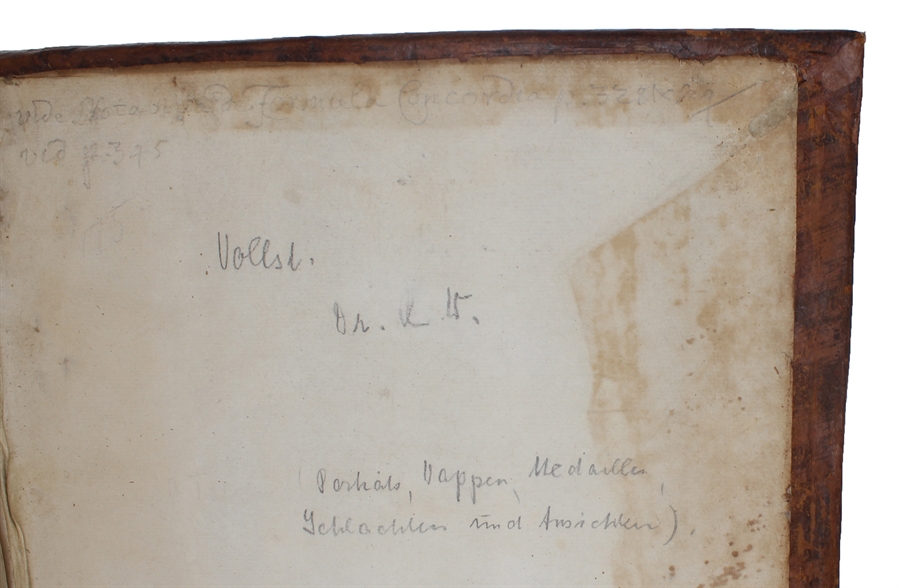 vide Formula Concordia p.
vid p. 345
Vollst.
Dr. K W.
(Porträts, Wappen, Medaillen,
Schlachten und Ansichten).